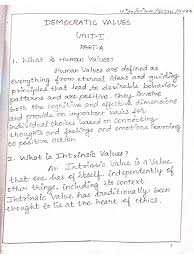 DEMOCRATIC VALUES
UNIT-I
PART-A
1. What is Human Values?
Human Values are defined as
everything from eternal ideas and guiding
principles that lead to desirable behavior
patterns and are positive. They involve
both the cognitive and effective dimensions
and provide an important basis for
individual choices based on connecting
thoughts and feelings and emotions learning
to positive action.
2. What is Intrinsic Values?
An Intrinsic Value is a Value
that one has of itself, independently of
other things, including its context
Intrinsic Value has traditionally been
thought to lie at the heart of ethics.